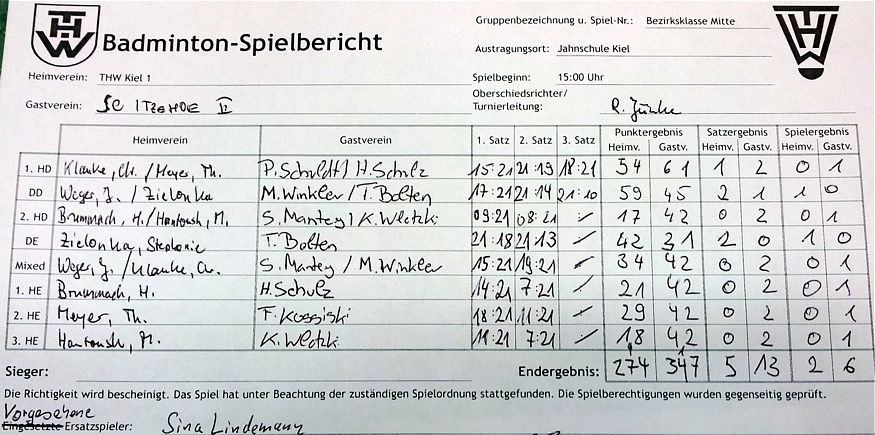 THW
Badminton-Spielbericht
Gruppenbezeichnung u. Spiel-Nr.: Bezirksklasse Mitte
Austragungsort: Jahnschule Kiel
THW
Heimverein: THW Kiel 1
Spielbeginn: 15:00 Uhr
Gastverein: SC ITZEHOE II
Oberschiedsrichter/
Turnierleitung: R. Jünke
Heimverein Gastverein 1. Satz 2. Satz 3. Satz Punktergebnis Satzergebnis Spielergebnis
Heimv. Gastv. Heimv. Gastv. Heimv. Gastv.
1. HD Klauke, Ch. / Meyer, Th. P. Schuldt / H. Schulz 15:21 21:19 18:21 54 61 1 2 0 1
DD Weger, J. / Zielonka M. Winkler / T. Bolten 17:21 21:14 21:10 59 45 2 1 1 0
2. HD Brummach, H. / Hantoush, M. S. Mantey / K. Wletzki 09:21 08:21 17 42 0 2 0 1
DE Zielonka, Stephanie T. Bolten 21:18 21:13 42 31 2 0 1 0
Mixed Weger, J. / Klauke, Ch. S. Mantey / M. Winkler 15:21 19:21 34 42 0 2 0 1
1. HE Brummach, H. H. Schulz 14:21 7:21 21 42 0 2 0 1
2. HE Meyer, Th. F. Kossiski 18:21 11:21 29 42 0 2 0 1
3. HE Hantoush, M. K. Wletzki 11:21 7:21 18 42 0 2 0 1
Sieger: Endergebnis: 274 347 5 13 2 6
Die Richtigkeit wird bescheinigt. Das Spiel hat unter Beachtung der zuständigen Spielordnung stattgefunden. Die Spielberechtigungen wurden gegenseitig geprüft.
Vorgesehene
Eingesetzte Ersatzspieler: Sina Lindemann